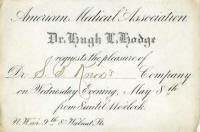 American Medical Association
Dr. Hugh L. Hodge
requests the pleasure of
Dr. S. G. Company
on Wednesday Evening, May 8th
from 8 until 11 o'clock.
N. W. cor. 9th & Walnut St.